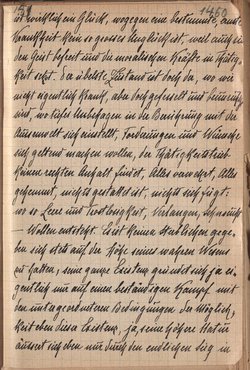 1450
ist wirklichen Glück, wogegen eine Bestimmung auch
Krankheit kein so grosses Unglück ist, weil auch in
den Geist befreit und die moralischen Kräfte in Thätig-
keit setzt. der übelste Zustand ist doch der, wo wir
nicht eigentlich krank, aber doch gefesselt und
wo tiefes Unbehagen in der Berührung mit der
Aussenwelt sich einstellt, Forderungen und Wünsche
sich geltend machen wollen, der Thätigkeitstrieb
keinen rechten Anhalt findet, Alles verwehrt, Alles
gehemmt, nichts gestattet ist, nichts sich fügt:
wo so Leere und Trostlosigkeit, Verlangen, Sehnsucht
Wollen entsteht. Es ist keinem Sterblichen gege-
ben sich stets auf der Höhe seines wahren Wesens
zu halten, seine ganze Existenz gründet sich ja ei-
gentlich nur auf einen beständigen Kampf mit
den untergeordneten Bedingungen der Möglich-
keit eben dieser Existenz, ja, seine höhere Natur
äussert sich eben nur durch den endlichen Sieg in